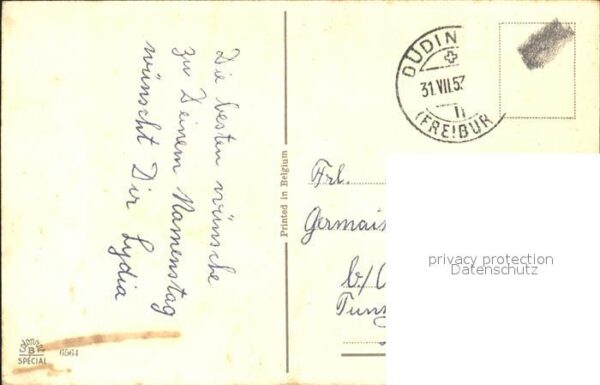 Die besten wünsche
zu Deinem Namenstag
wünscht Dir Lydia
Printed in Belgium
DÜDIN
31.VII.57
(FREIBUR
Frl.
Germais
b/
privacy protection
Datenschutz
B
SPECIAL
6561